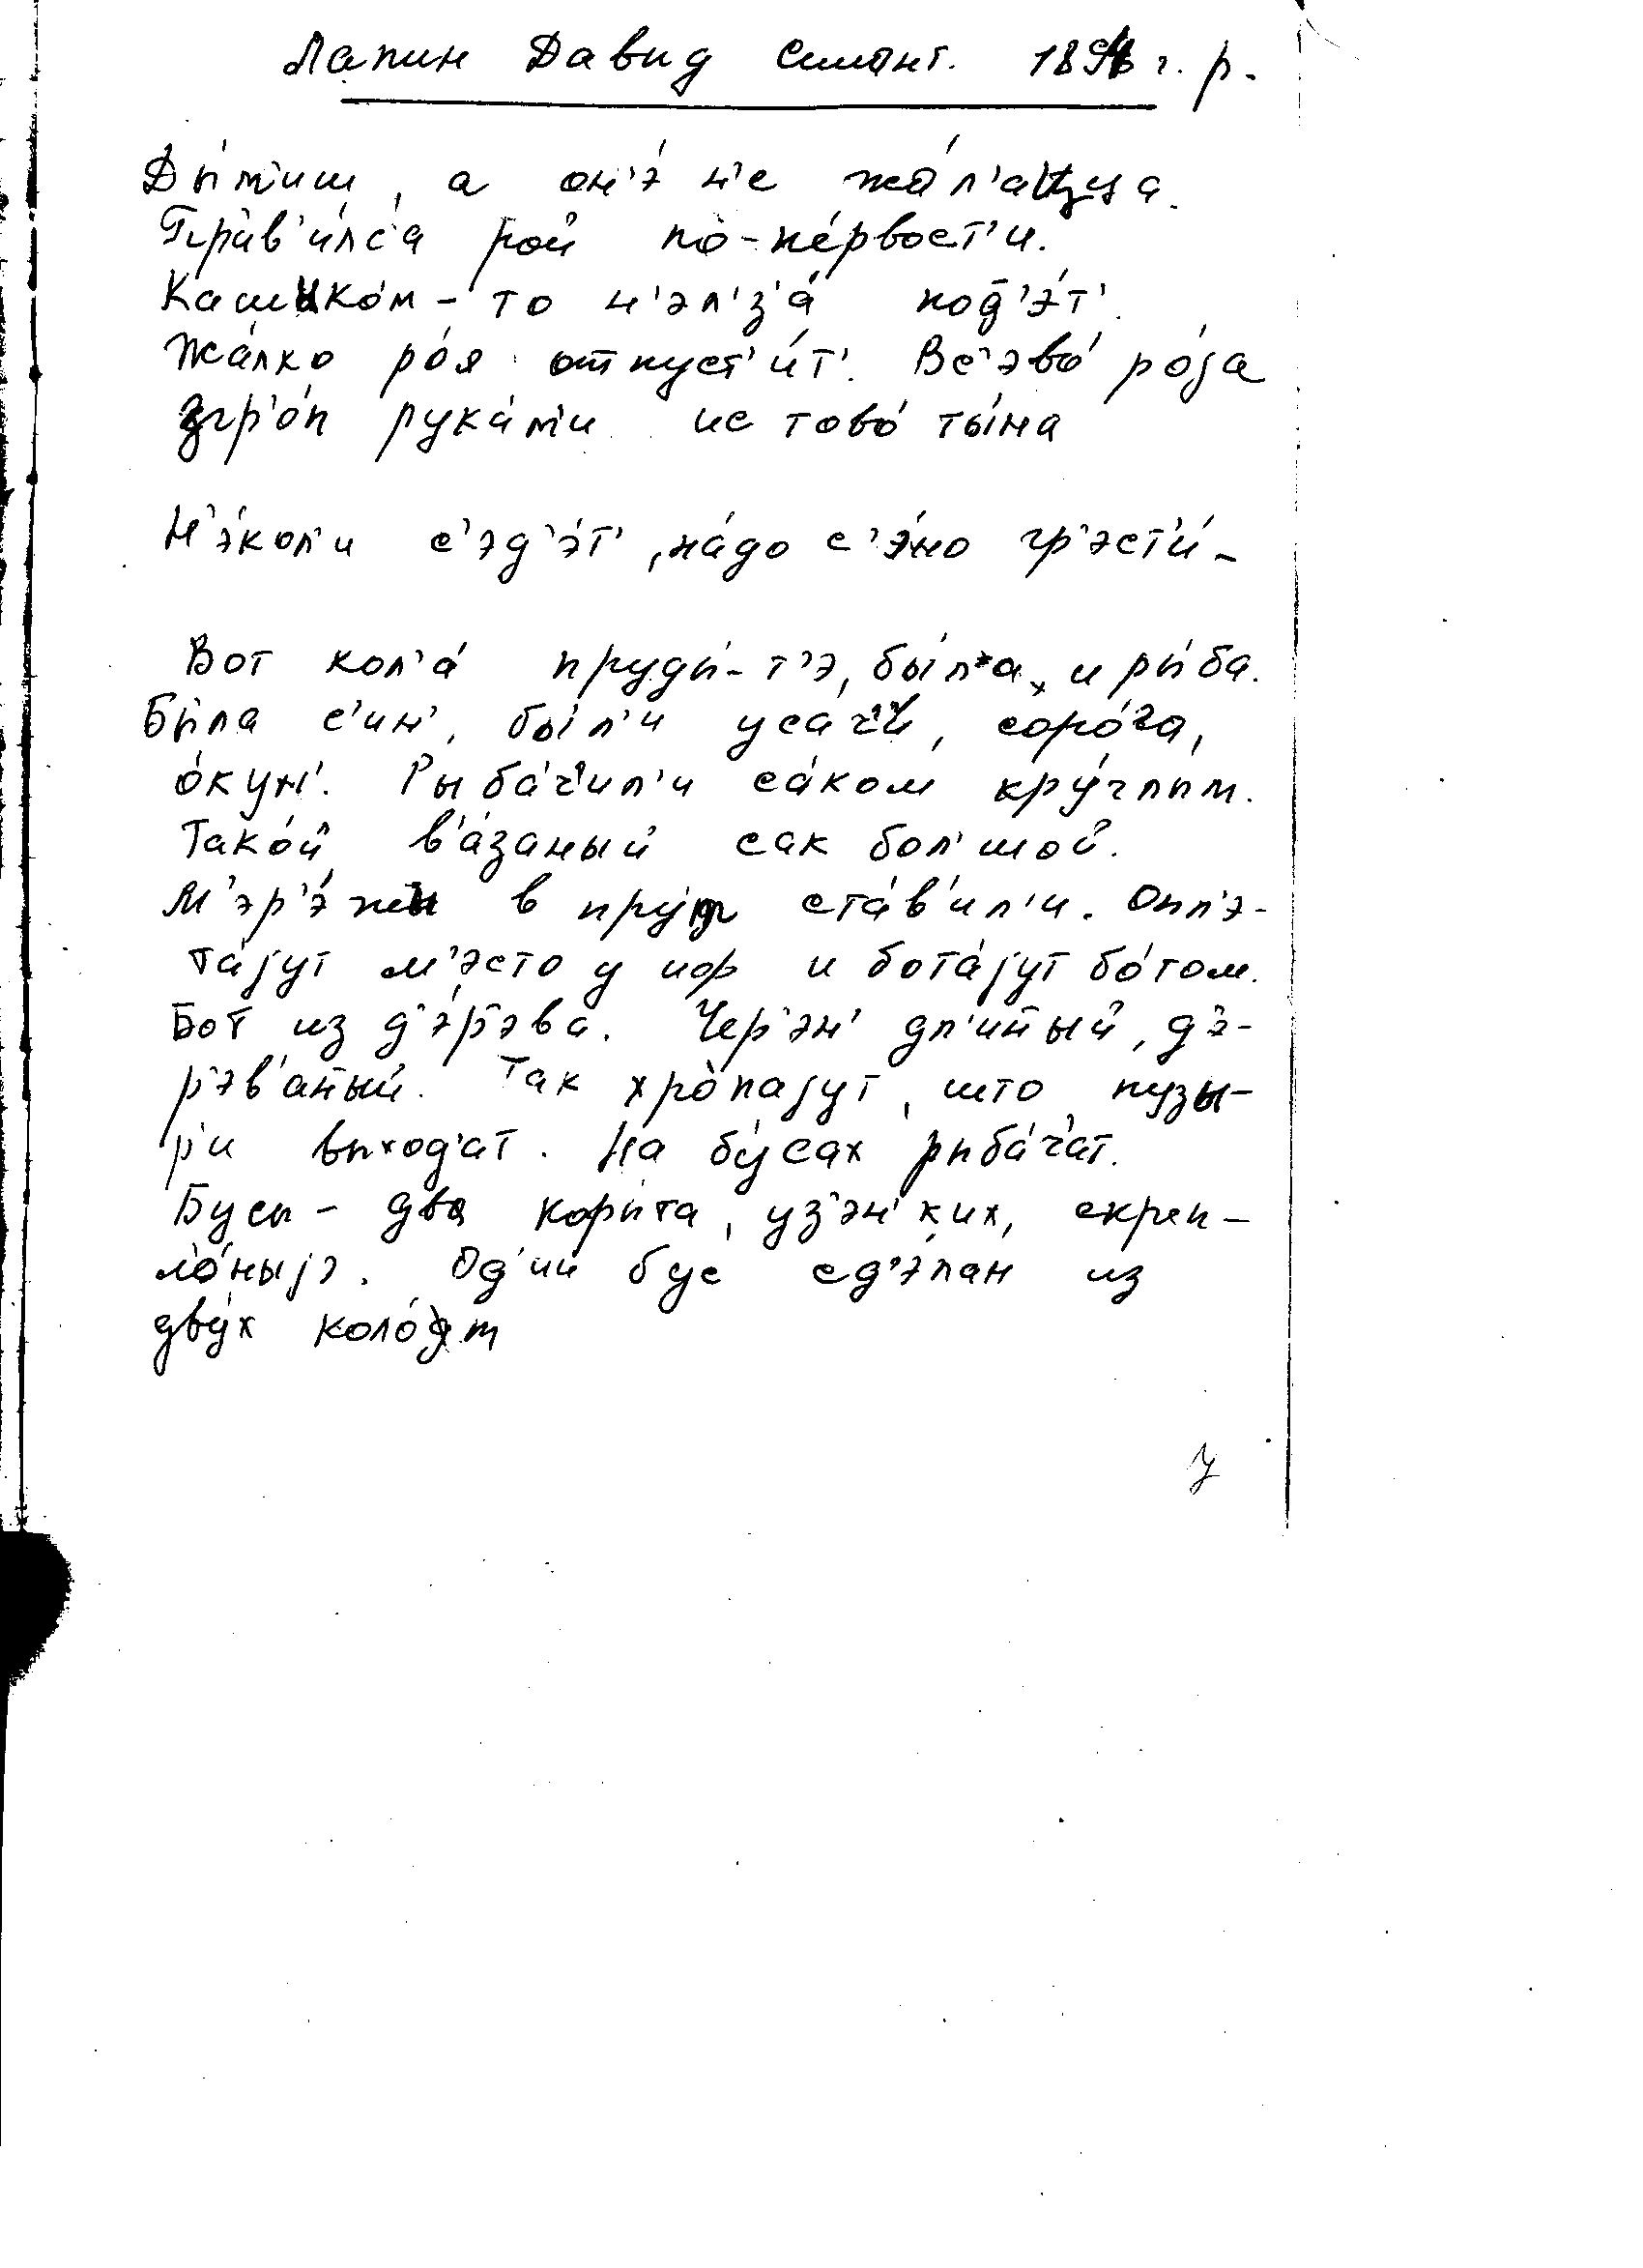 Лапин Давид г. р.
Ды́м'иш, а он'э́ н'е жа́л'ацца.
Прив'и́лс'а рой по-пе́рвост'и.
Кашыко́м-то н'эл'з'а́ под'э́т'.
Жа́лко ро́я отпуст'и́т'. Вс'эво́ ро́jа
згр'о́п рука́м'и ис тово́ ты́на
Н'э́кол'и с'эд'э́т', на́до с'э́но гр'эст'и́-
Вот кол'а́ пруды́-т'э, была, и ры́ба.
Была с'ин', бы́л'и усач'и́, соро́га,
о́кун'. Рыба́ч'ил'и са́ком кру́глым.
Тако́й в'а́заный сак бол'шой.
М'эр'э́жы в пру́т ста́в'ил'и. Опл'э-
та́jут м'э́сто у нор и бота́jут бо́том.
Бот из д'э́р'эва. Чер'эн' дл'и́ный, д'э-
р'эв'а́ный. Так хро́паjут, што пузы-
р'и́ выход'ат. На бу́сах рыба́ч'ат.
Бусы - два коры́та, у́з'эн'ких, скреп-
л'о́ныjэ. Од'и́н бус сд'э́лан из
дву́х коло́т